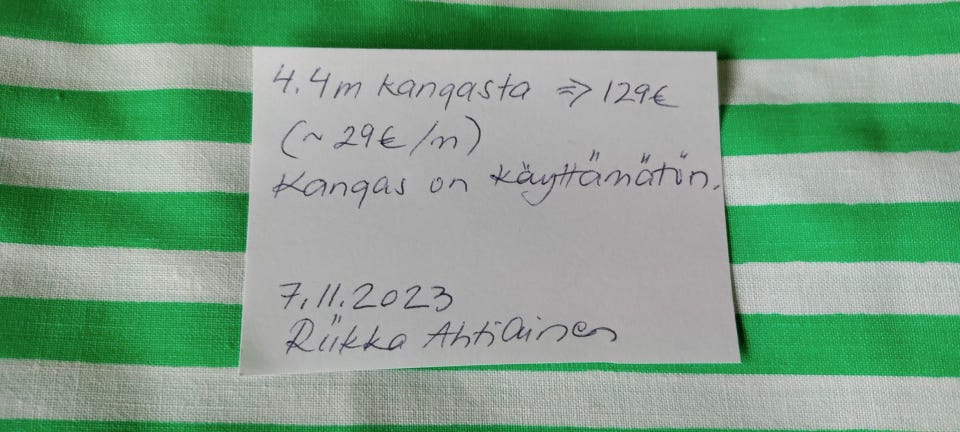 4.4m kangasta => 129€
(~29€/m)
Kangas on käyttämätön.
7.11.2023
Riikka Ahtiainen